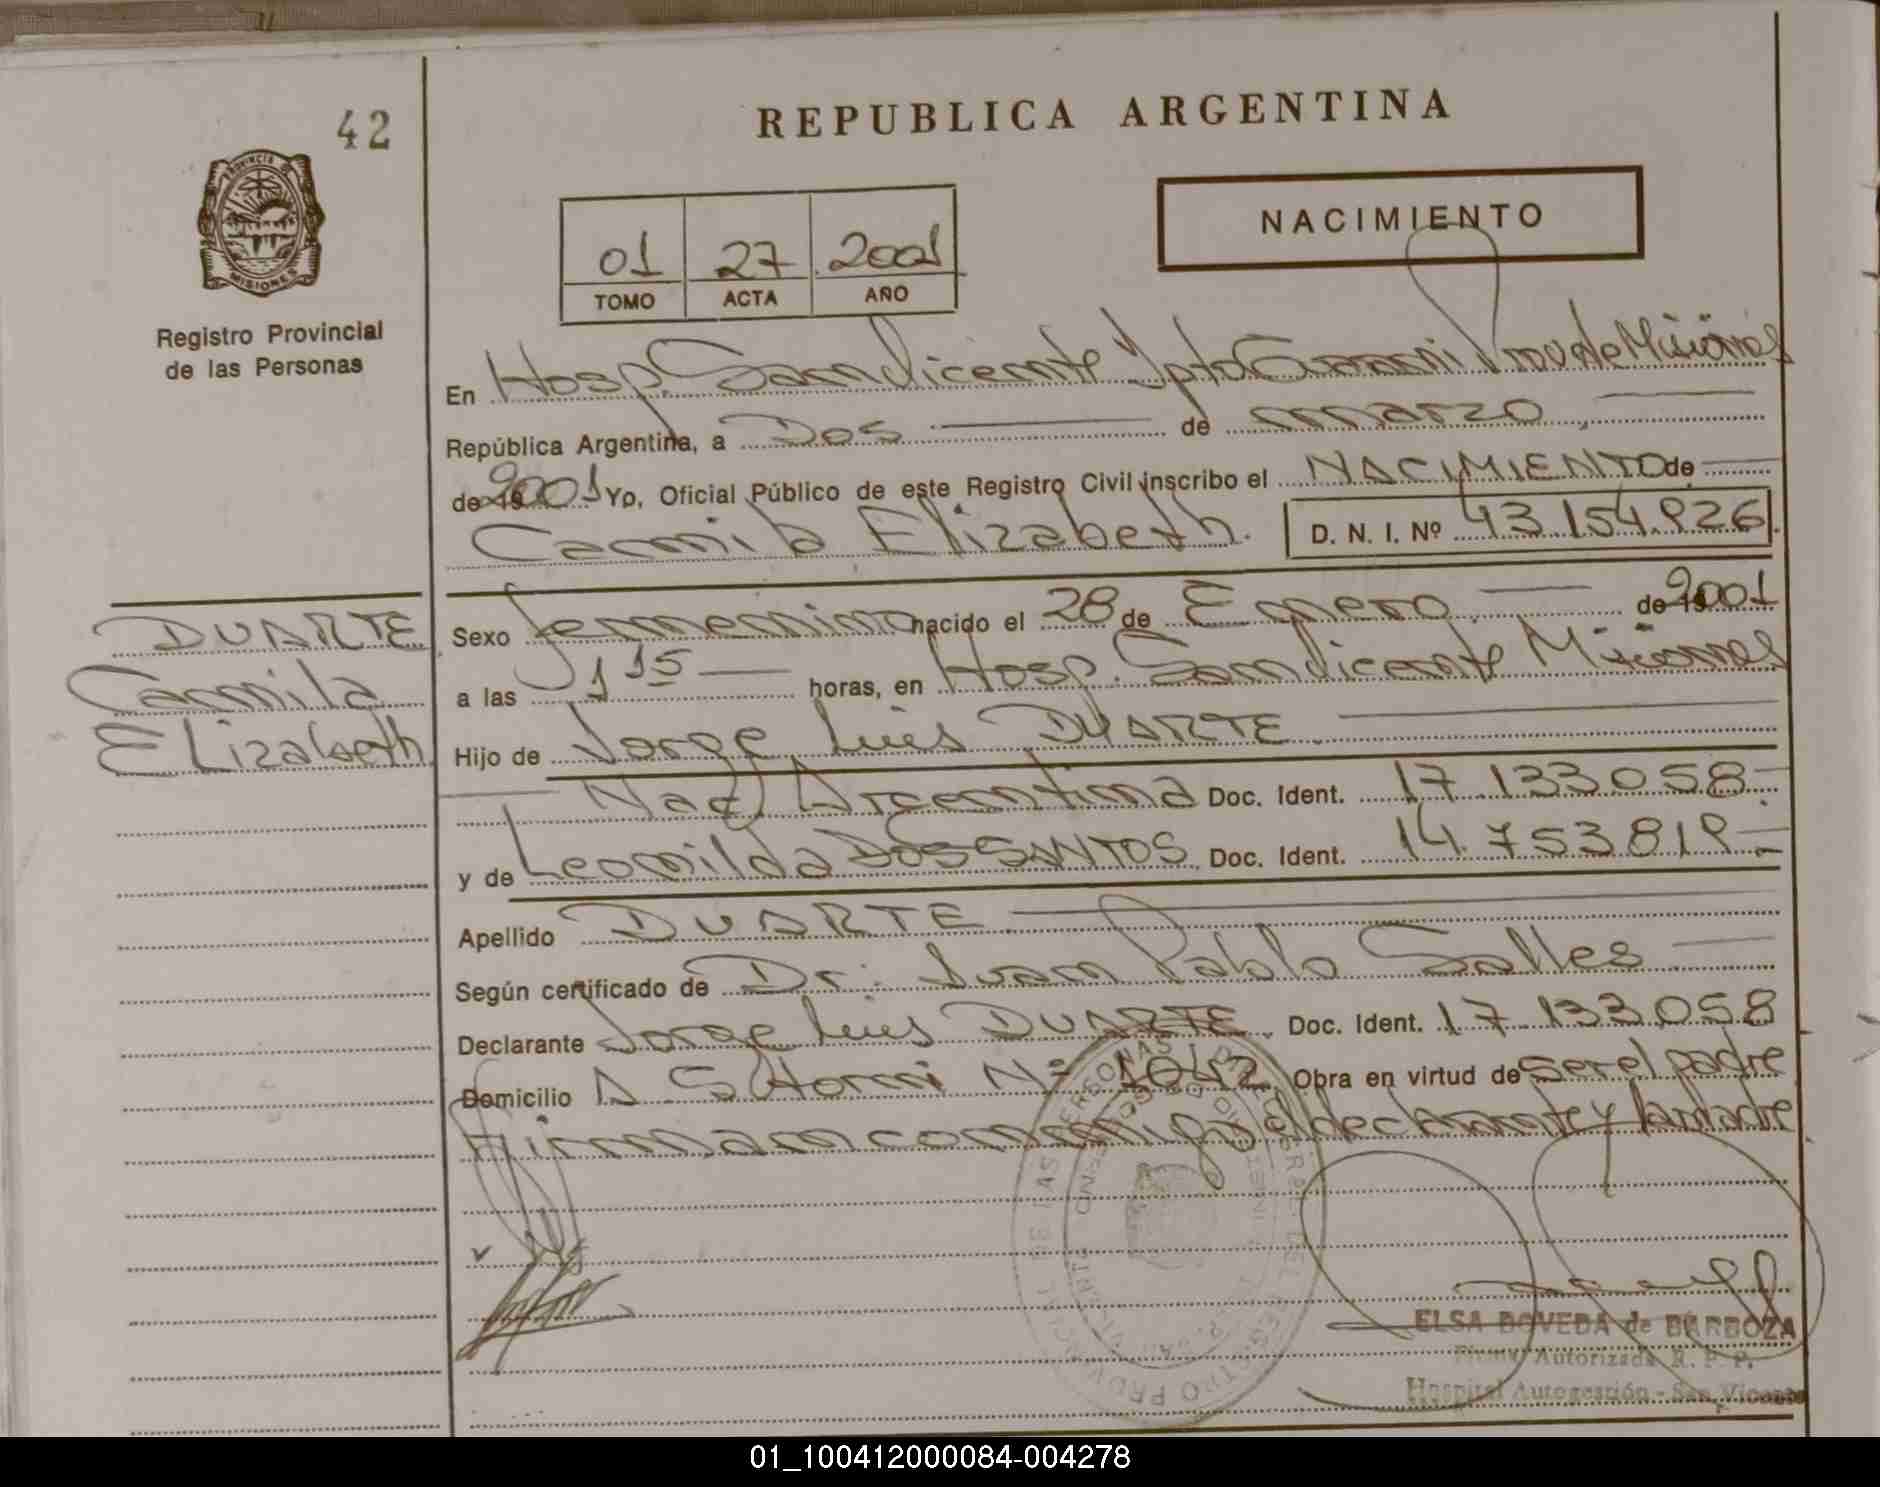 42
REPUBLICA ARGENTINA
PROVINCIA DE
MISIONES
Registro Provincial
de las Personas
NACIMIENTO
01 27 2001
TOMO ACTA AÑO
En Hosp. San Vicente Dpto Guarani Prov de Misiones
República Argentina, a Dos de marzo
de 19 2001 Yo, Oficial Público de este Registro Civil inscribo el NACIMIENTO de
Camila Elizabeth. D. N. I. Nº 43.154.926
DUARTE
Camila
Elizabeth
Sexo femenino nacido el 28 de Enero de 19 2001
a las 1 15 horas, en Hosp. San Vicente Misiones
Hijo de Jorge Luis DUARTE
Nac. Argentina Doc. Ident. 17.133.058
y de Leonilda DOS SANTOS Doc. Ident. 14.753.819
Apellido DUARTE
Según certificado de Dr. Juan Pablo Salles
Declarante Jorge Luis DUARTE Doc. Ident. 17.133.058
Domicilio A. Storni Nº 1042 Obra en virtud de ser el padre
firman conmigo el declarante y la madre
ELSA BOVEDA de BARBOZA
Firma Autorizada R. P. P.
Hospital Autogestión - San Vicente
01_100412000084-004278